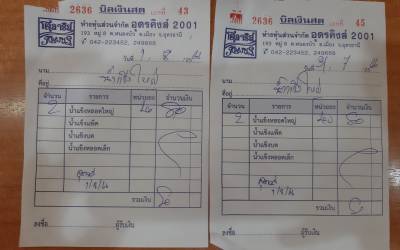 เล่มที่ 2636 บิลเงินสด เลขที่ 43
ห้างหุ้นส่วนจำกัด อุดรคิงส์ 2001
193 หมู่ 8 ต.หนองบัว อ.เมือง จ.อุดรธานี
042-223452, 249655
วันที่
นาม
ที่อยู่
จำนวน รายการ หน่วยละ จำนวนเงิน
2 น้ำแข็งหลอดใหญ่ 40 80
น้ำแข็งแพ็ค
น้ำแข็งบด
น้ำแข็งหลอดเล็ก
รวมเงิน 80
ลงชื่อ ผู้รับเงิน
2636 บิลเงินสด เลขที่ 45
ห้างหุ้นส่วนจำกัด อุดรคิงส์ 2001
193 หมู่ 8 ต.หนองบัว อ.เมือง จ.อุดรธานี
042-223452, 249655
นาม
ที่อยู่
จำนวน รายการ หน่วยละ จำนวนเงิน
2 น้ำแข็งหลอดใหญ่ 40 80
น้ำแข็งแพ็ค
น้ำแข็งบด
น้ำแข็งหลอดเล็ก
รวมเงิน
ลงชื่อ ผู้รับเงิน